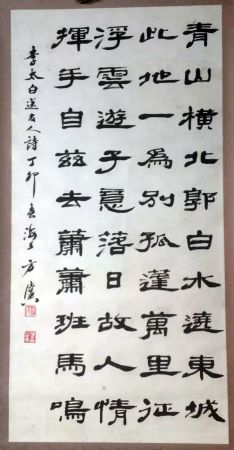 青山橫北郭白水遶東城
此地一爲別孤蓬萬里征
浮雲遊子意落日故人情
揮手自茲去蕭蕭班馬鳴
李太白送友人詩丁卯春海上方